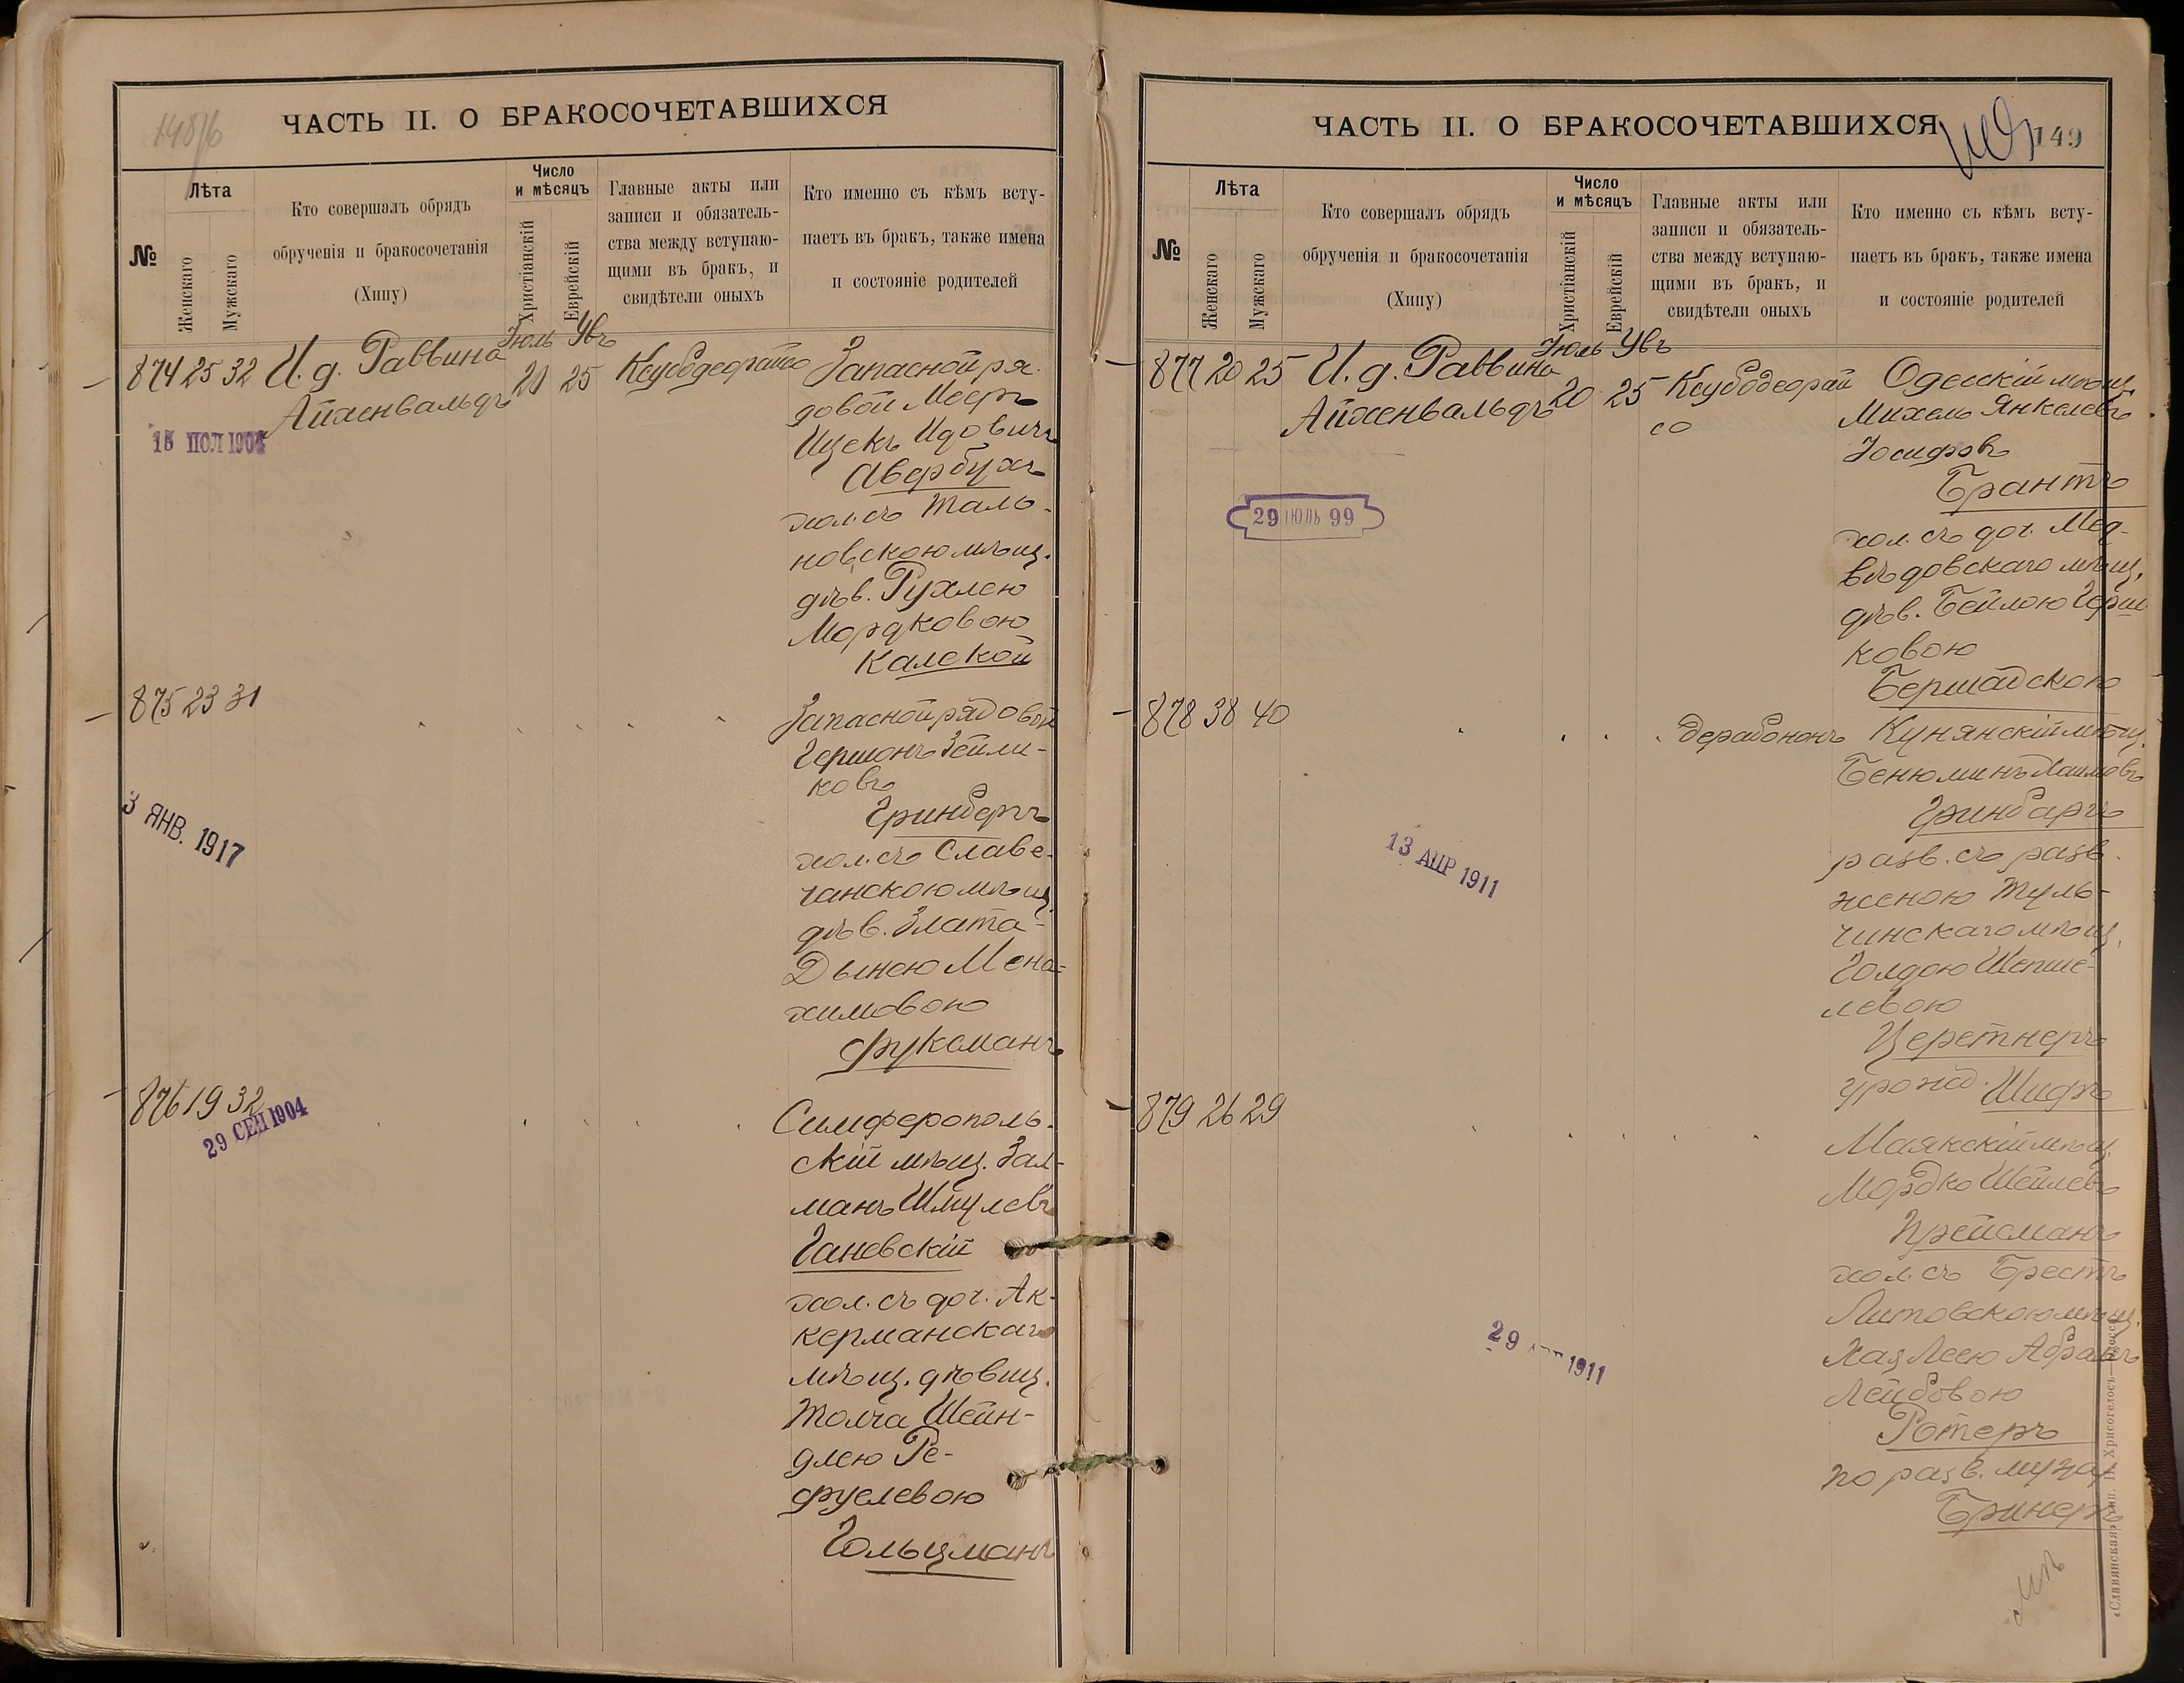 ЧАСТЬ II. О БРАКОСОЧЕТАВШИХСЯ
№
Лѣта
Женскаго
Мужскаго
Кто совершалъ обрядъ
обрученія и бракосочетанія
(Хипу)
Число
и мѣсяцъ
Христіанскій
Еврейскій
Главные акты или
записи и обязатель-
ства между вступаю-
щими въ бракъ, и
свидѣтели оныхъ
Кто именно съ кѣмъ всту-
паетъ въ бракъ, также имена
и состояніе родителей
874 25 32 И. д. Раввина
Айхенвальдъ
Іюль Увъ
20 25
Запасной ря-
довой Мееръ
Ицекъ Идовичъ
Авербухъ
хол. съ Таль-
новскою мѣщ.
дѣв. Рухлею
Мордковою
Калской
15 ПОЛ 1904
875 23 31
Запасной рядовой
Гершонъ Зейли-
ковъ
Гринбергъ
хол. съ Славе-
чанскою мѣщ.
дѣв. Злата-
Дынею Мена-
химовою
Фуксманъ
3 ЯНВ. 1917
876 19 32
29 СЕН 1904
Симферополь-
скій мѣщ. Зал-
манъ Шмулевъ
Ганевскій
хол. съ доч. Ак-
керманскаго
мѣщ. дѣвиц.
Толча Шейн-
длею Ре-
фуелевою
Гольцманъ
ЧАСТЬ II. О БРАКОСОЧЕТАВШИХСЯ
149
№
Лѣта
Женскаго
Мужскаго
Кто совершалъ обрядъ
обрученія и бракосочетанія
(Хипу)
Число
и мѣсяцъ
Христіанскій
Еврейскій
Главные акты или
записи и обязатель-
ства между вступаю-
щими въ бракъ, и
свидѣтели оныхъ
Кто именно съ кѣмъ всту-
паетъ въ бракъ, также имена
и состояніе родителей
877 20 25 И. д. Раввина
Айхенвальдъ
Іюль Увъ
20 25
Ксубодеорай
со
Одесскій мѣщ.
Михель Янкелевъ
Іосифовъ
Брантъ
хол. съ доч. Мед-
вѣдовскаго мѣщ.
дѣв. Бейлою Герш
ковою
Бершадскою
29 ІЮЛЬ 99
878 38 40
дерабононъ
Кунянскій мѣщ.
Бенюминъ Хаимовъ
Гринбаргъ
разв. съ разв.
женою Туль-
чинскаго мѣщ.
Голдою Шепше-
левою
Церетнеръ
урожд. Шифъ
13 АПР 1911
879 26 29
Маякскій мѣщ.
Мордко Шейлевъ
Прейсманъ
хол. съ Брестъ
Литовскою мѣщ.
Хая Леею Абрамъ
Лейбовою
Ротеръ
по разв. мужу
Бринеръ
29 1911
«Славянская» тип. Н. Хрисогелосъ—Одесса